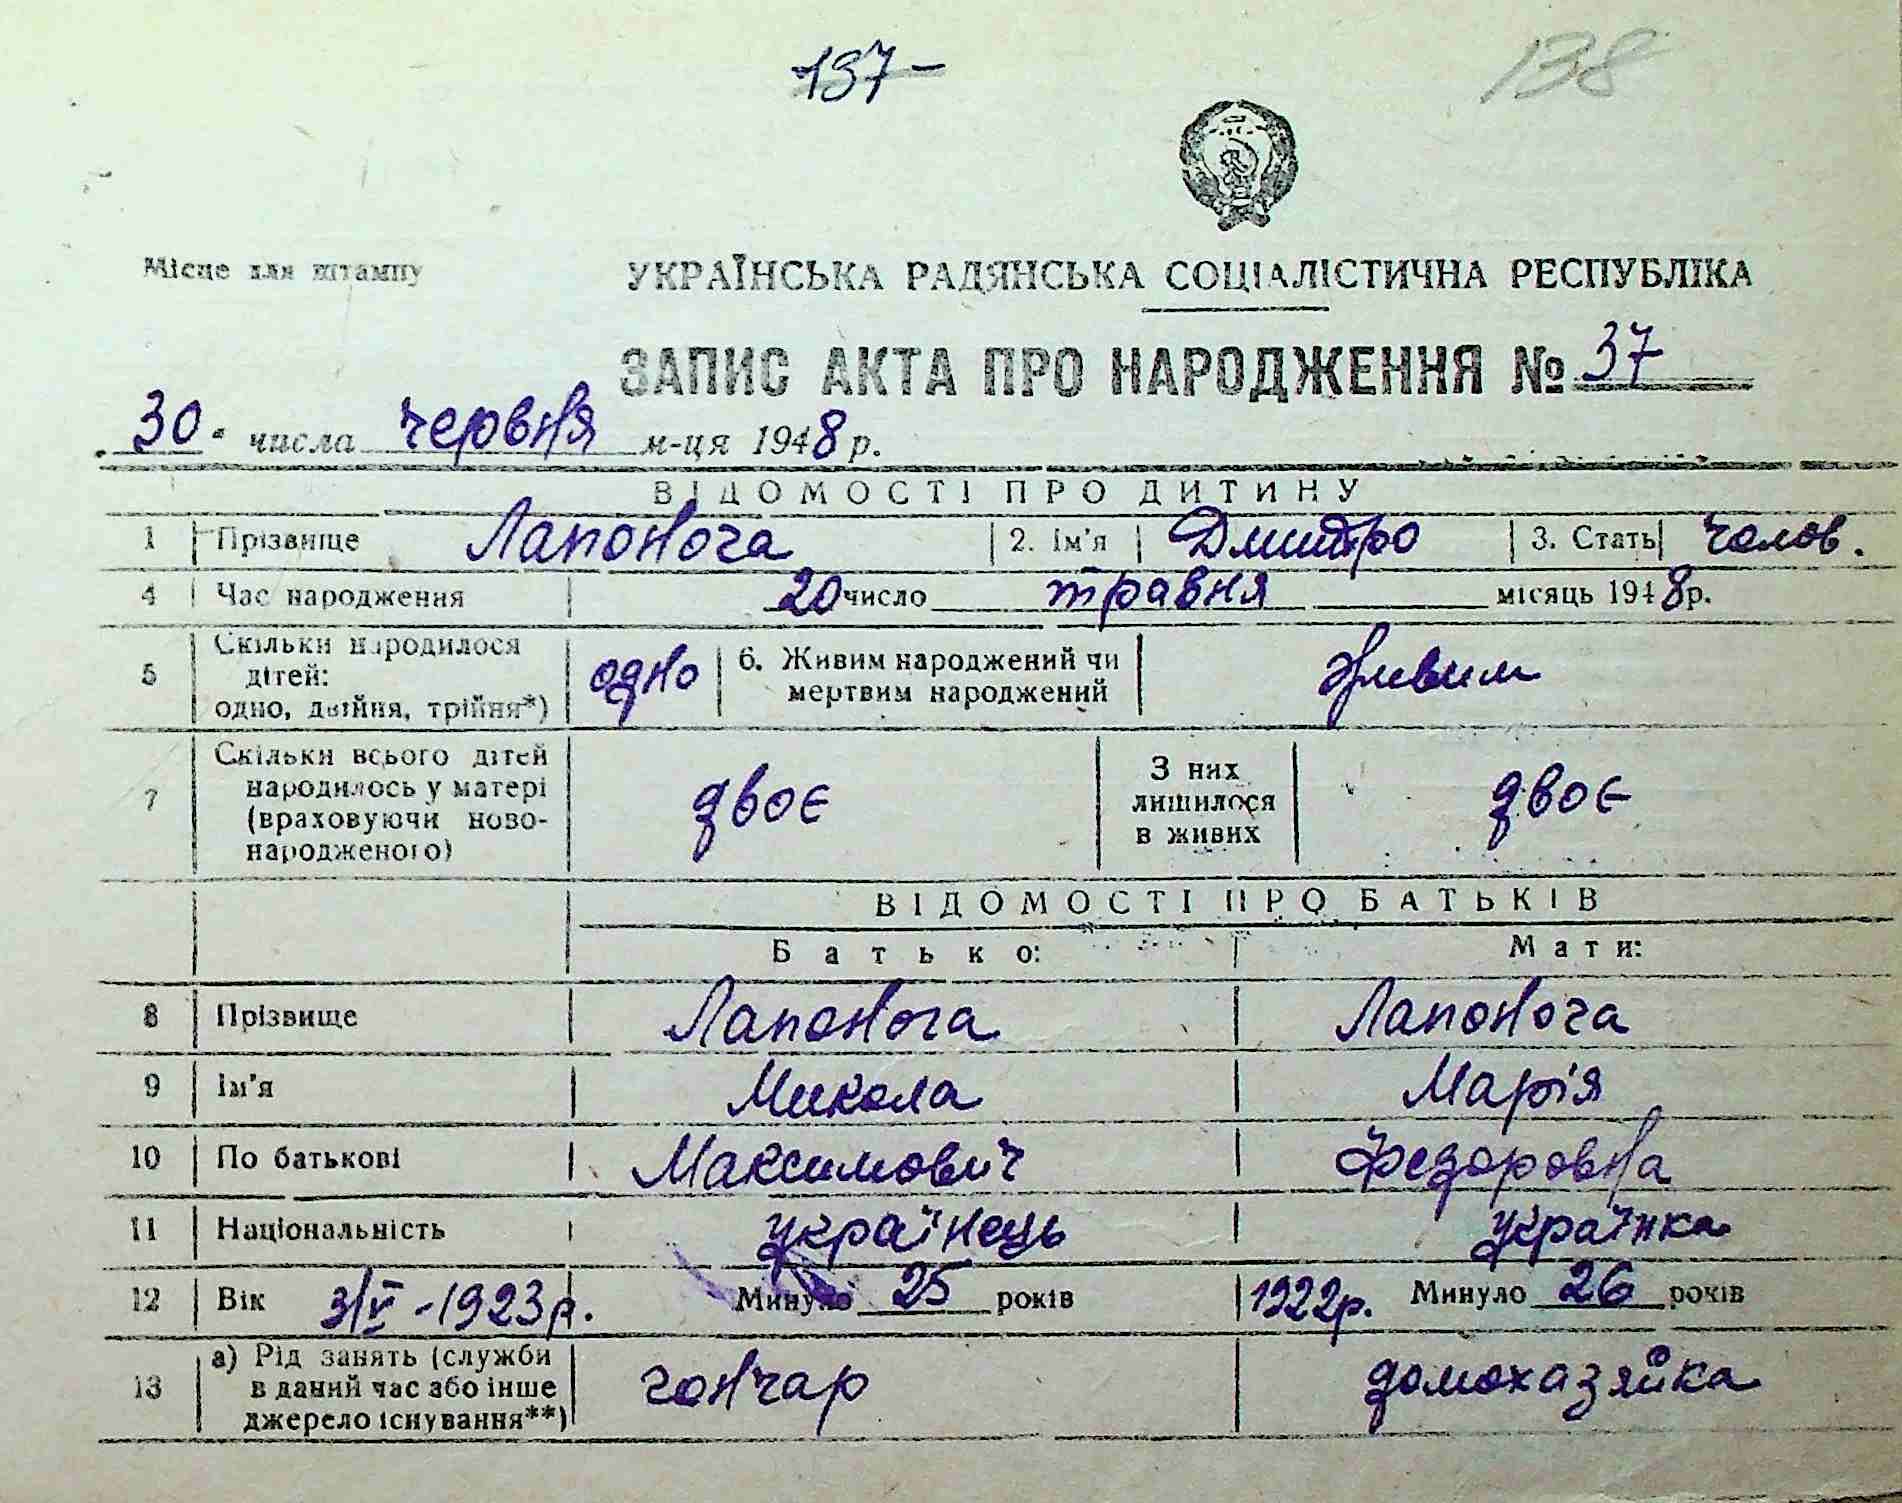 197-
138
Місце для штампу
УКРАЇНСЬКА РАДЯНСЬКА СОЦІАЛІСТИЧНА РЕСПУБЛІКА
ЗАПИС АКТА ПРО НАРОДЖЕННЯ № 37
30 числа червня м-ця 1948 р.
ВІДОМОСТІ ПРО ДИТИНУ
1 Прізвище Лапонога 2. Ім'я Дмитро 3. Стать чолов.
4 Час народження 20 число травня місяць 1948 р.
5 Скільки народилося дітей: одно, двійня, трійня*) одно 6. Живим народжений чи мертвим народжений Живим
7 Скільки всього дітей народилось у матері (враховуючи ново-народженого) двоє З них лишилося в живих двоє
ВІДОМОСТІ ПРО БАТЬКІВ
Батько: Мати:
8 Прізвище Лапонога Лапонога
9 Ім'я Микола Марія
10 По батькові Максимович Федоровна
11 Національність українець українка
12 Вік 3/V-1923р. Минуло 25 років 1922р. Минуло 26 років
13 а) Рід занять (служби в даний час або інше джерело існування**) гончар домохазяйка